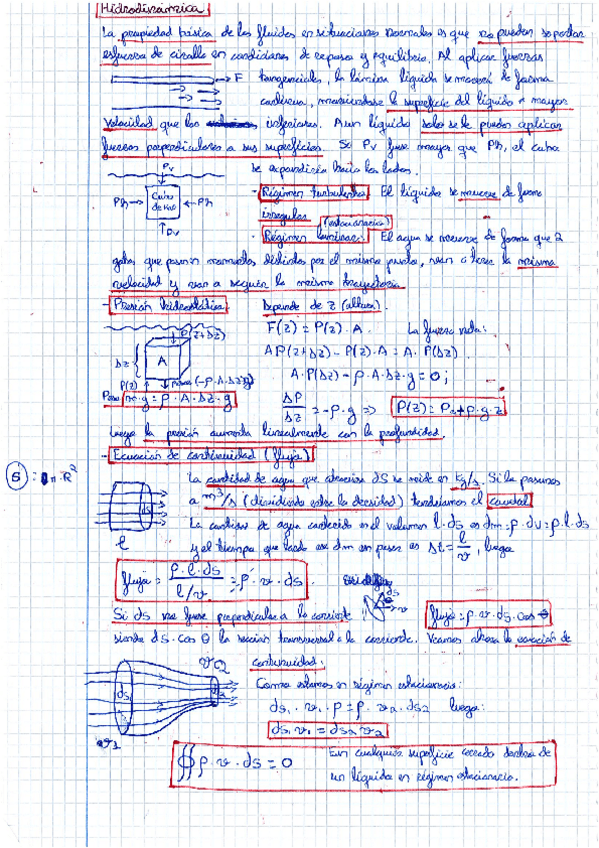 Hidrodinámica
La propiedad básica de los fluidos en situaciones normales es que no pueden soportar
esfuerzos de cizalla en condiciones de reposo y equilibrio. Al aplicar fuerzas
F tangenciales, la lámina líquida se moverá de forma
continua, moviéndose la superficie del líquido a mayor
velocidad que las inferiores. A un líquido solo se le pueden aplicar
fuerzas perpendiculares a sus superficies. Si Pv fuese mayor que Ph, el cubo
Pv se expandiría hacia los lados.
Ph → Cubo de H2O ← Ph
Pv
- Régimen turbulento: El líquido se mueve de forma
irregular (estacionario)
- Régimen laminar: El agua se mueve de forma que 2
gotas que pasen momentos distintos por el mismo punto, van a tener la misma
velocidad y van a seguir la misma trayectoria.
- Presión hidrostática Depende de z (altura).
P(z+Δz) F(z) = P(z) · A. La fuerza neta:
Δz A A P(z+Δz) - P(z) · A = A · P(Δz)
P(z) A · P(Δz) - ρ · A · Δz · g = 0;
Peso m · g = ρ · A · Δz · g ΔP/Δz = -ρ · g ⇒ P(z) = P0 + ρ · g · z
luego la presión aumenta linealmente con la profundidad.
- Ecuación de continuidad (flujo)
S : π · R²
La cantidad de agua que atraviesa dS se mide en kg/s. Si la pasamos
a m³/s (dividiendo entre la densidad) tendríamos el caudal
dS
l
La cantidad de agua contenida en el volumen l · dS es dm = ρ · dV = ρ · l · dS
y el tiempo que tarda ese dm en pasar es Δt = l/v, luego
flujo = ρ · l · dS / l/v = ρ · v · dS
Si dS no fuese perpendicular a la corriente flujo = ρ · v · dS · cos θ
siendo dS · cos θ la sección transversal a la corriente. Veamos ahora la ecuación de
continuidad.
Como estamos en régimen estacionario:
dS1 · v1 · ρ = ρ · v2 · dS2 luego:
dS1 v1 = dS2 v2
dS1
v1
v2
∯ ρ · v · dS = 0 En cualquier superficie cerrada dentro de
un líquido en régimen estacionario.